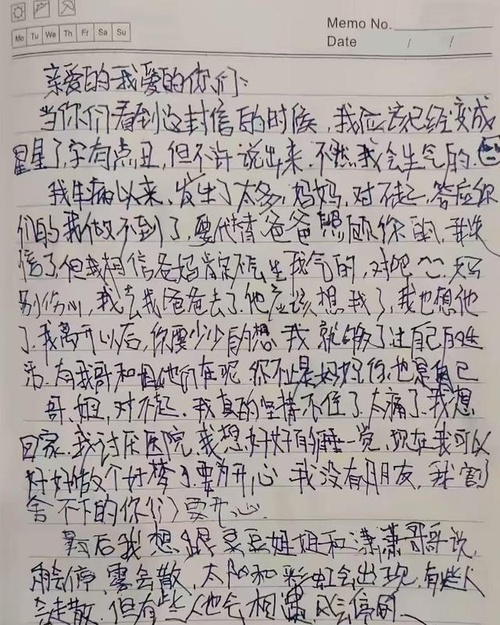 Memo No.
Mo Tu We Th Fr Sa Su
Date / /
亲爱的我爱的你们:
当你们看到这封信的时候,我应该已经变成
星星了,字有点丑,但不许说出来,不然我会生气的.
我生病以来,发生了太多,妈妈,对不起,答应你
们的我做不到了,要代替爸爸照顾你的,我失
信了,但我相信爸妈肯定不会生我气的,对吧^^.
别伤心,我去找爸爸去了.他应该想我了,我也想他
了.我离开以后,你要少少的想我就够了过自己的生
活.有我哥和姐他们在呢.你不止是妈妈,你也是自己
哥,姐,对不起.我真的坚持不住了.太痛了.我想
回家.我讨厌医院,我想好好的睡一觉,现在我可以
好好做个好梦了要开心我没有朋友,我
舍不下的你们要开心.
最后我想跟豆豆姐姐和潇潇哥哥说,
雨会停,雾会散,太阳和彩虹会出现.有些人
会走散.但有些人也会相遇.风会停的